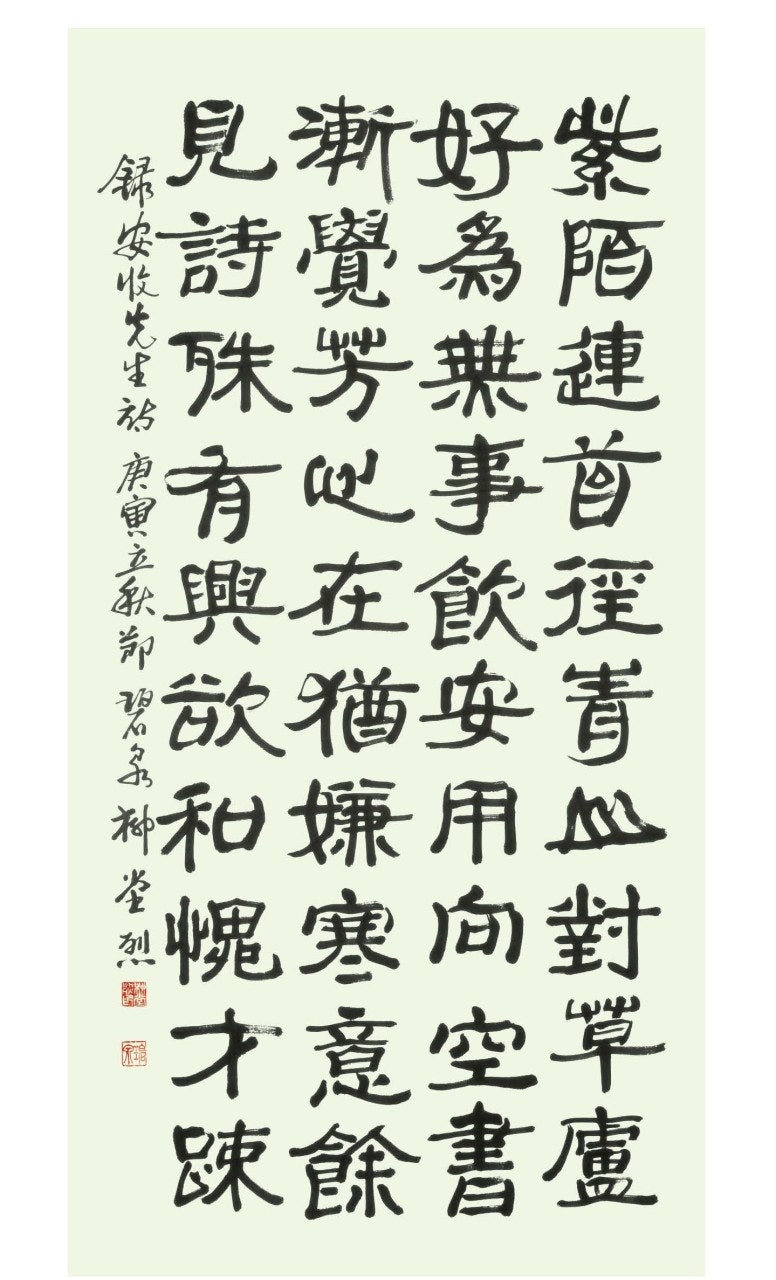 紫陌連徑青山對草廬
好爲無事飲安用向空書
漸覺芳心在猶嫌寒意餘
見詩殊有興欲和愧才疎
錄安收先生詩 庚寅立秋節 碧泉 柳堂烈